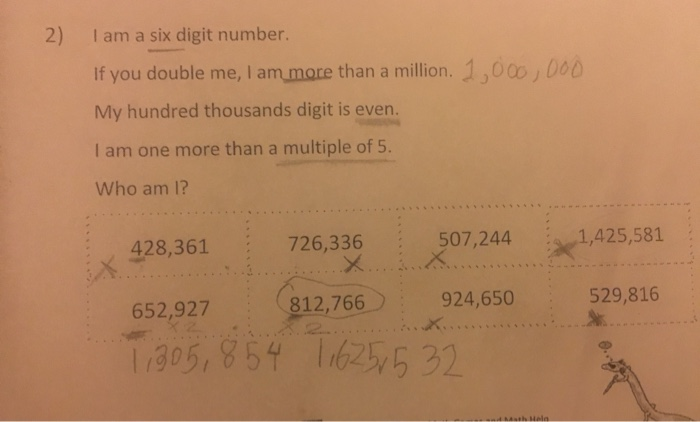 2) I am a six digit number.
If you double me, I am more than a million. 1,000,000
My hundred thousands digit is even.
I am one more than a multiple of 5.
Who am I?
428,361 726,336 507,244 1,425,581
X X X X
652,927 812,766 924,650 529,816
x2 x2 X X
1,305,854 1,625,532
Math Help